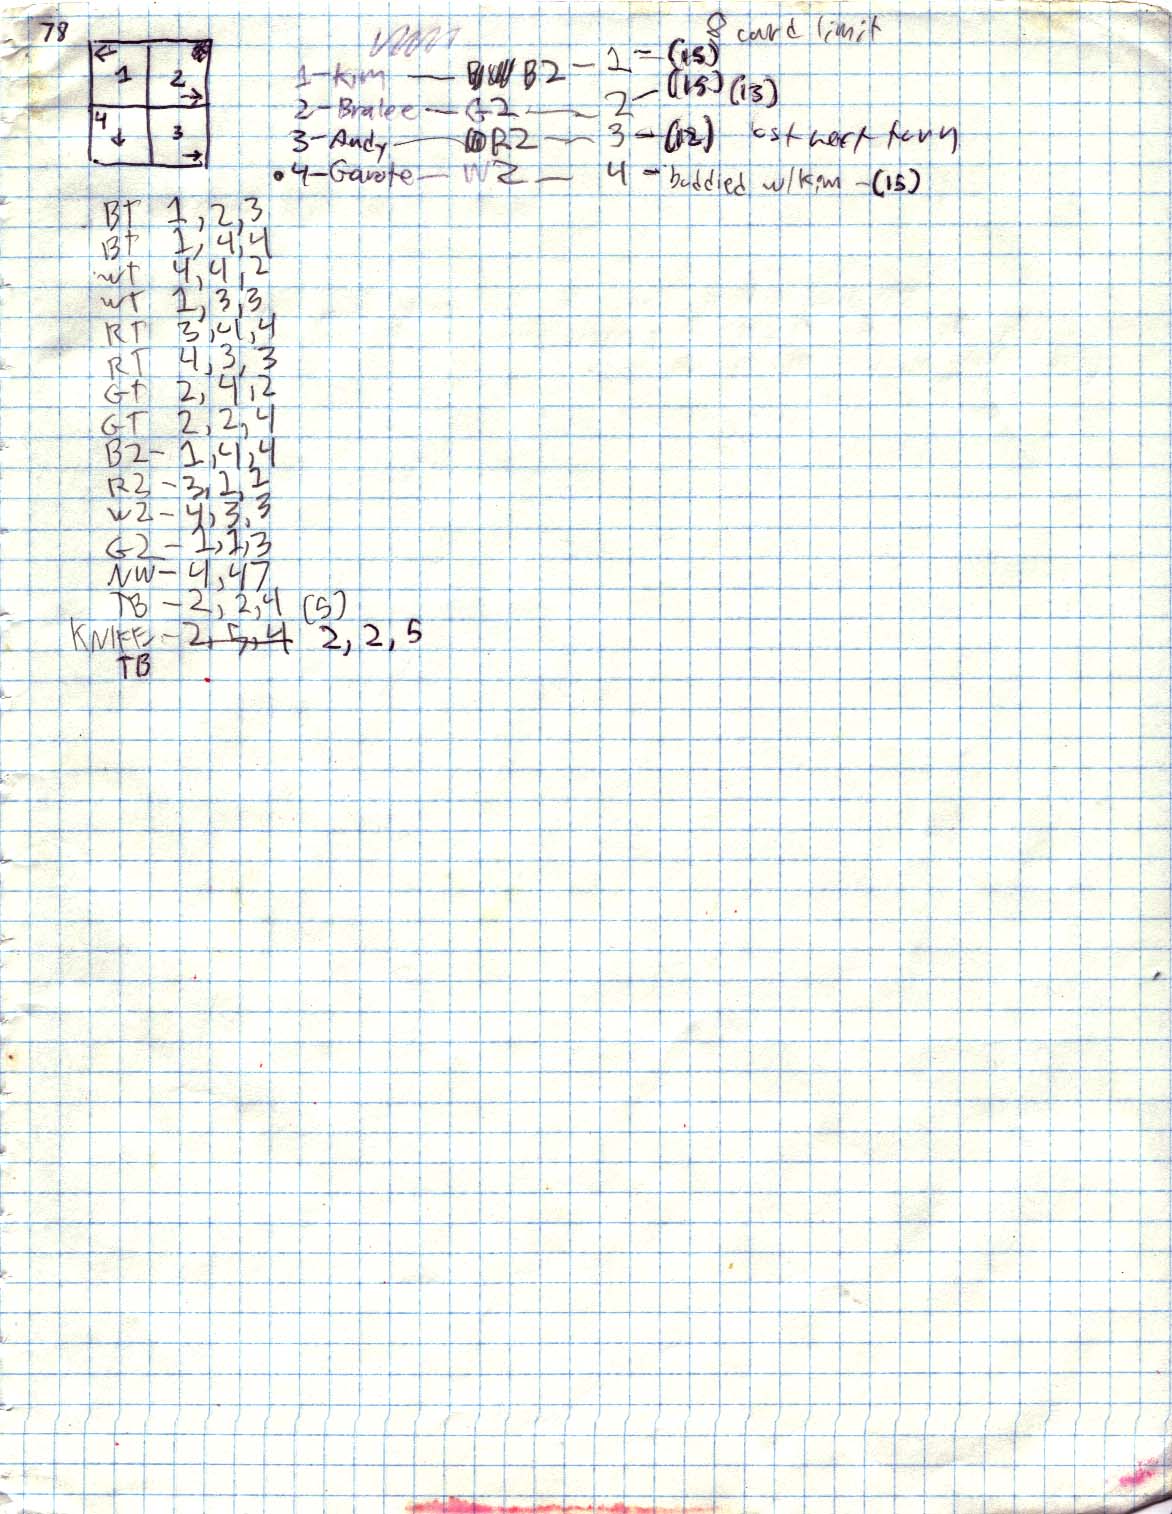 78
8 card limit
← 1 2 →
4 ↓ 3 →
1-Kim — B2 - 1 = (15)
2-Bralee — G2 — 2 - (15) (13)
3-Andy — R2 — 3 - (12) lost next turn
4-Garote — W2 — 4 - buddied w/Kim - (15)
BT 1, 2, 3
BT 1, 4, 4
WT 4, 4, 2
WT 1, 3, 3
RT 3, 4, 4
RT 4, 3, 3
GT 2, 4, 2
GT 2, 2, 4
B2 - 1, 4, 4
R2 - 3, 1, 2
W2 - 4, 3, 3
G2 - 1, 1, 3
NW - 4, 47
TB - 2, 2, 4 (5)
KNIFE - 2, 5, 4 2, 2, 5
TB